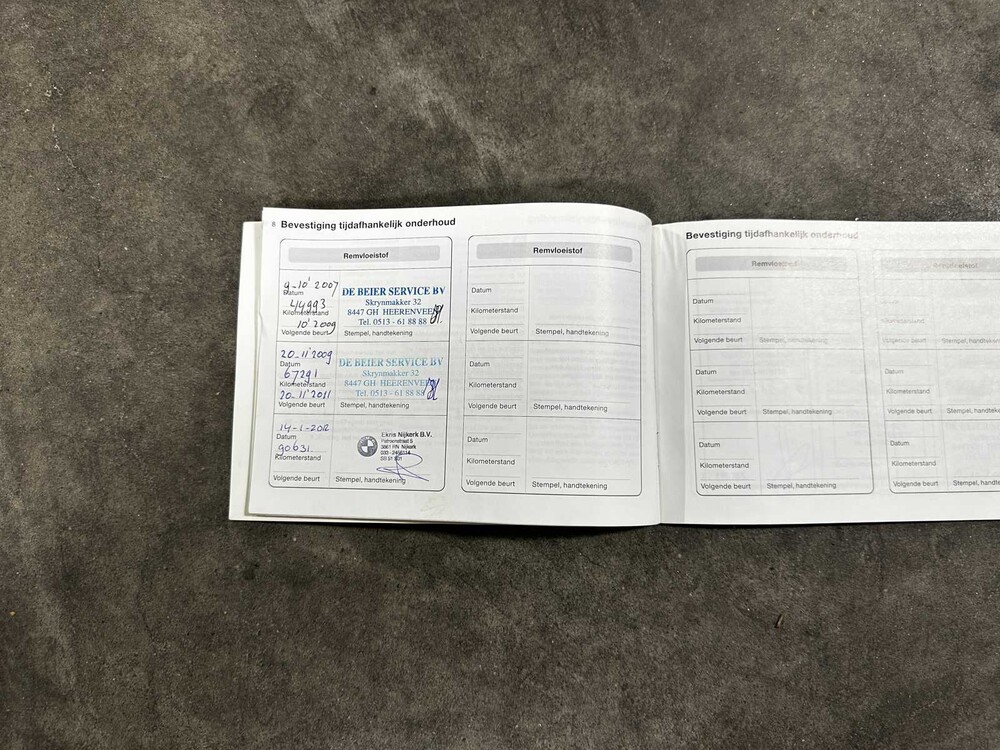 8 Bevestiging tijdafhankelijk onderhoud
Remvloeistof
9-10' 2007
Datum
44993
Kilometerstand
10' 2009
Volgende beurt
DE BEIER SERVICE BV
Skrynmakker 32
8447 GH HEERENVEEN
Tel. 0513 - 61 88 88
Stempel, handtekening
20-11'2009
Datum
67291
Kilometerstand
20-11'2011
Volgende beurt
DE BEIER SERVICE BV
Skrynmakker 32
8447 GH HEERENVEEN
Tel. 0513 - 61 88 88
Stempel, handtekening
14-1-2012
Datum
90631
Kilometerstand
Volgende beurt
Ekris Nijkerk B.V.
3861 RN Nijkerk
Stempel, handtekening
Remvloeistof
Datum
Kilometerstand
Volgende beurt Stempel, handtekening
Datum
Kilometerstand
Volgende beurt Stempel, handtekening
Datum
Kilometerstand
Volgende beurt Stempel, handtekening
Bevestiging tijdafhankelijk onderhoud
Remvloeistof
Datum
Kilometerstand
Volgende beurt Stempel, handtekening
Datum
Kilometerstand
Volgende beurt Stempel, handtekening
Datum
Kilometerstand
Volgende beurt Stempel, handtekening
Remvloeistof
Kilometerstand
Volgende beurt
Datum
Kilometerstand
Volgende beurt
Datum
Kilometerstand
Volgende beurt